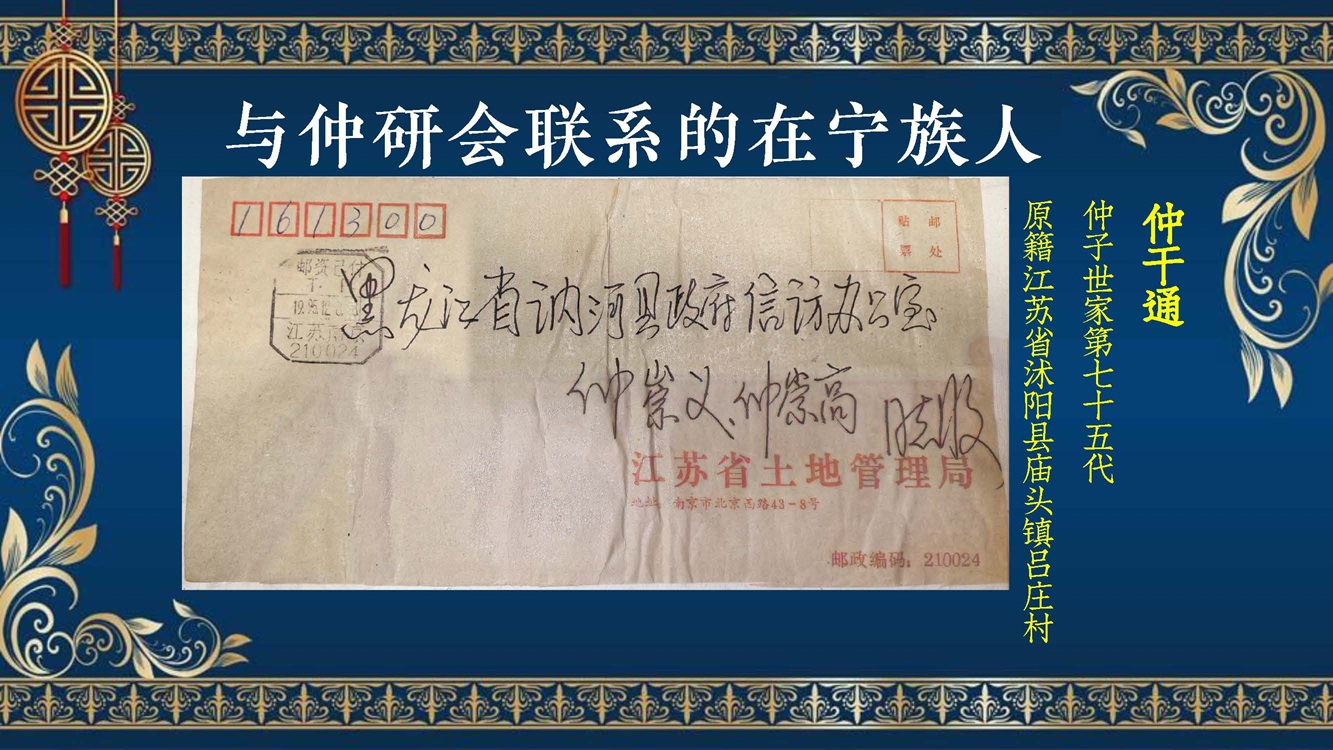 与仲研会联系的在宁族人
仲干通
仲子世家第七十五代
原籍江苏省沭阳县庙头镇吕庄村
161300
贴 邮
票 处
邮资已付
江苏南京
210024
黑龙江省讷河县政府信访办公室
仲崇义、仲崇高 收
江苏省土地管理局
地址：南京市北京西路43－8号
邮政编码：210024